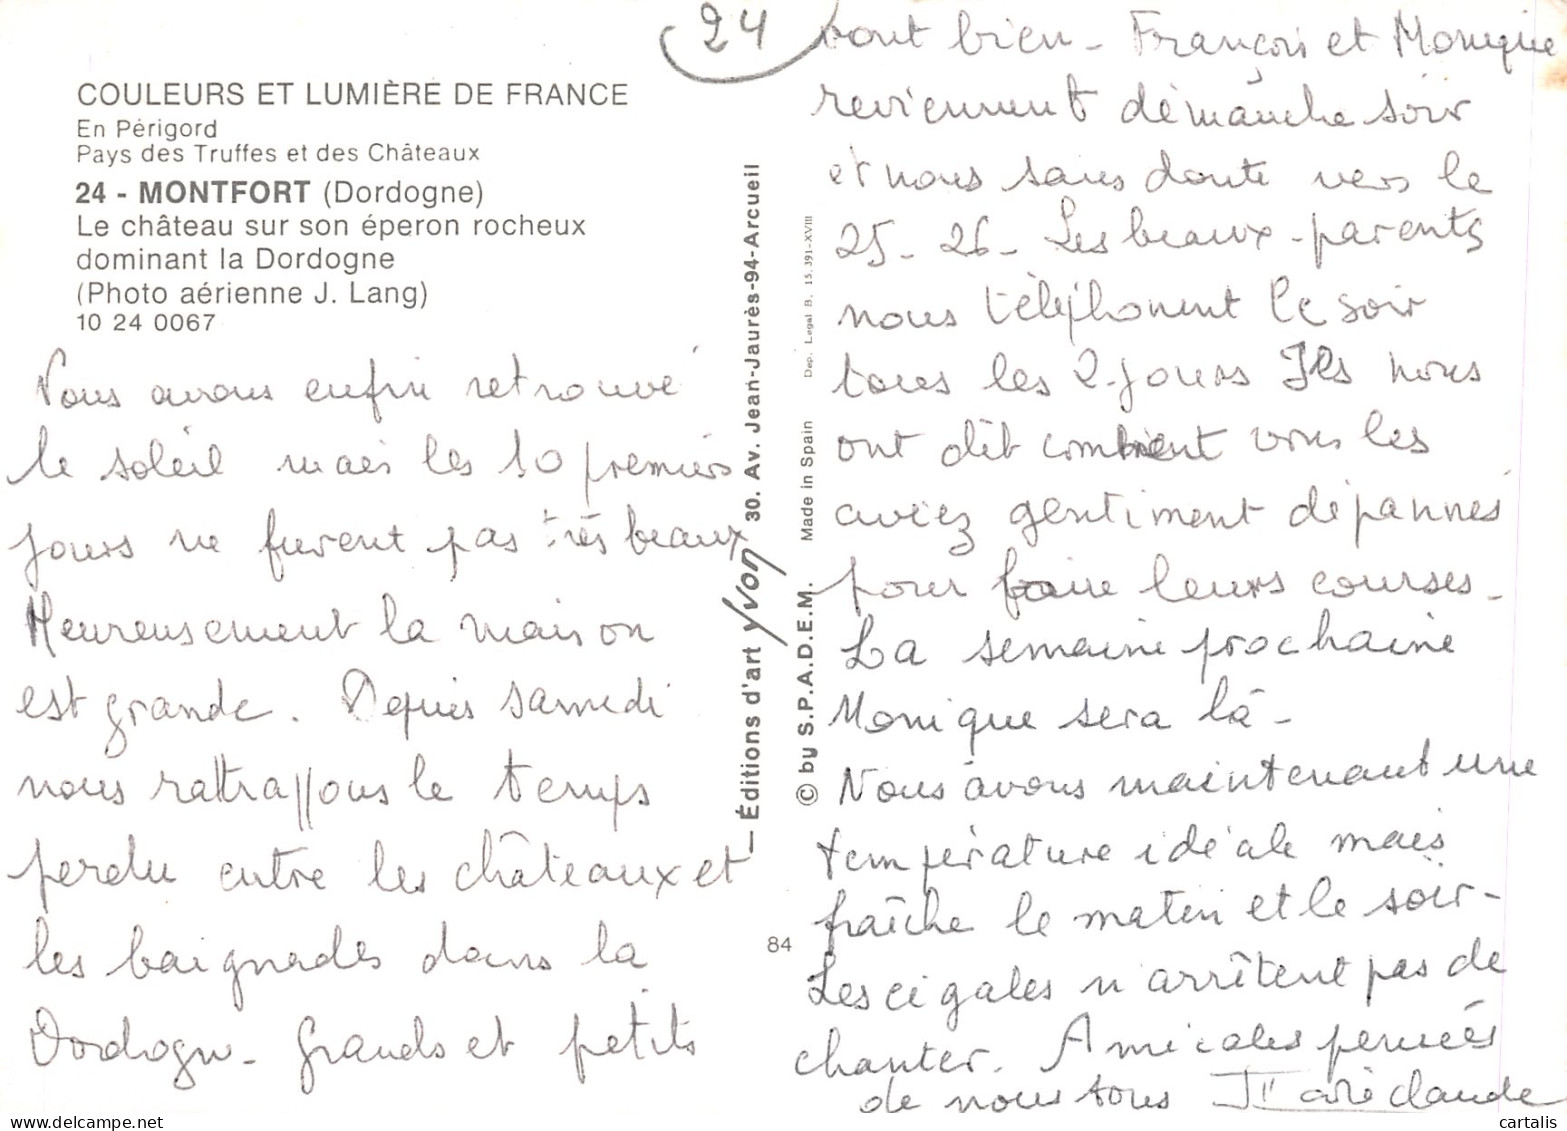 24
COULEURS ET LUMIÈRE DE FRANCE
En Périgord
Pays des Truffes et des Châteaux
24 - MONTFORT (Dordogne)
Le château sur son éperon rocheux
dominant la Dordogne
(Photo aérienne J. Lang)
10 24 0067
Nous avons enfin retrouvé
le soleil mais les 10 premiers
jours ne furent pas très beaux
Heureusement la maison
est grande. Depuis samedi
nous rattrappons le temps
perdu entre les châteaux et
les baignades dans la
Dordogne - Grands et petits
— Éditions d'art Yvon 30. Av. Jean-Jaurès-94-Arcueil
© by S.P.A.D.E.M. Made in Spain Dep. Legal B. 15.391-XVIII
84
vont bien - François et Monique
reviennent démanche soir
et nous sans doute vers le
25 - 26 - Les beaux-parents
nous télèphonent le soir
tous les 2 jours Ils nous
ont dit comment vous les
aviez gentiment dépannés
pour faire leurs courses -
La semaine prochaine
Monique sera là -
Nous avons maintenant une
température idéale mais
fraîche le matin et le soir -
Les cigales n'arrêtent pas de
chanter. Amicales pensées
de nous tous Marie claude